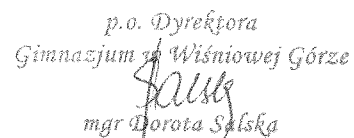 p.o. Dyrektora
Gimnazjum w Wiśniowej Górze
mgr Dorota Salska